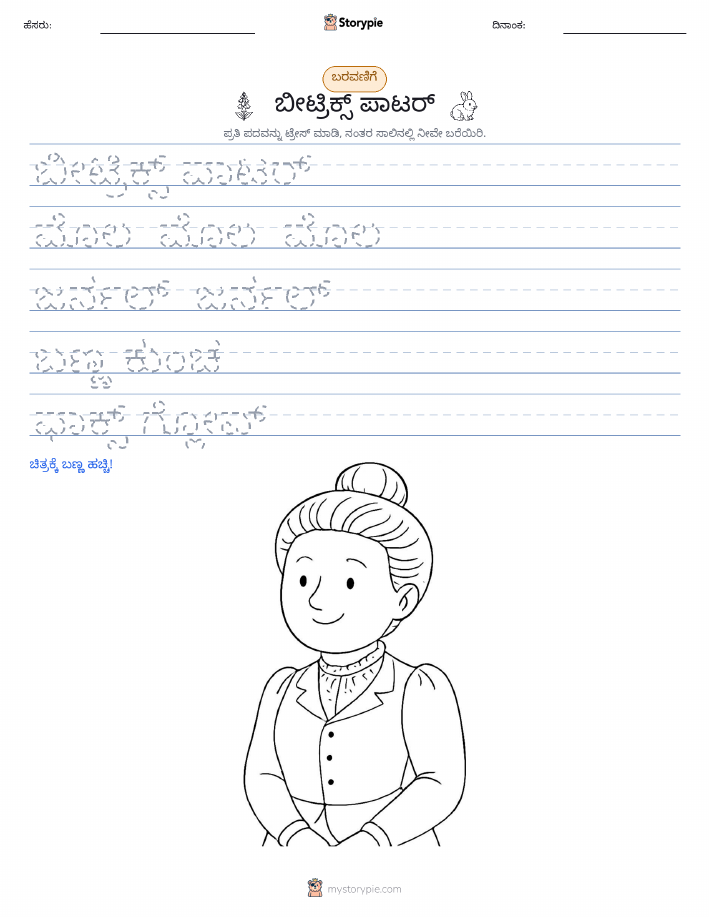 ಹೆಸರು:
Storypie
ದಿನಾಂಕ:
ಬರವಣಿಗೆ
ಬೀಟ್ರಿಕ್ಸ್ ಪಾಟರ್
ಪ್ರತಿ ಪದವನ್ನು ಟ್ರೇಸ್ ಮಾಡಿ, ನಂತರ ಸಾಲಿನಲ್ಲಿ ನೀವೇ ಬರೆಯಿರಿ.
ಬೀಟ್ರಿಕ್ಸ್ ಪಾಟರ್
ಮೊಲ ಮೊಲ ಮೊಲ
ಜರ್ನಲ್ ಜರ್ನಲ್
ಬಣ್ಣ ಕುಂಚ
ಫಾಕ್ಸ್ ಗ್ಲೋವ್
ಚಿತ್ರಕ್ಕೆ ಬಣ್ಣ ಹಚ್ಚಿ!
mystorypie.com